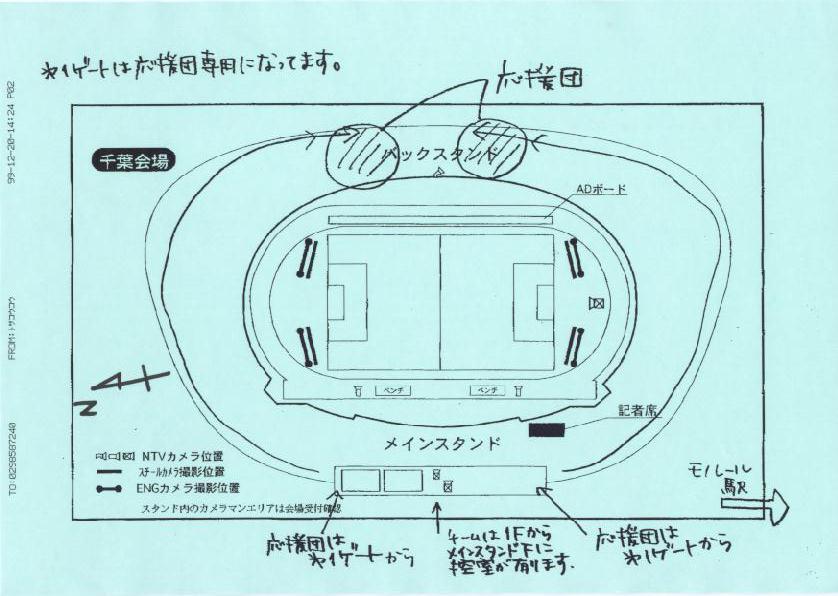 *1ゲートは応援団専用になってます。
応援団
千葉会場
バックスタンド
ADボード
ベンチ
ベンチ
記者席
メインスタンド
N
NTVカメラ位置
スチールカメラ撮影位置
ENGカメラ撮影位置
スタンド内のカメラマンエリアは会場受付確認
モノレール
駅
応援団は
*1ゲートから
チームは1Fから
メインスタンド下に
控室が有ります.
応援団は
*1ゲートから
99-12-20-14:24 P02
FROM:トリコウコウ
TO:0298587240